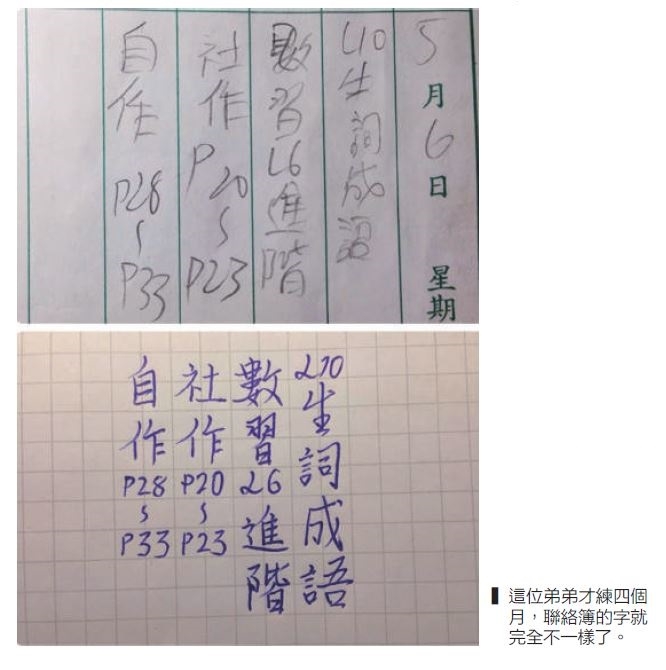 5月6日 星期
L10生詞成語
數習L6進階
社作P20~P23
自作P28~P33
L10生詞成語
數習L6進階
社作P20~P23
自作P28~P33
這位弟弟才練四個
月，聯絡簿的字就
完全不一樣了。